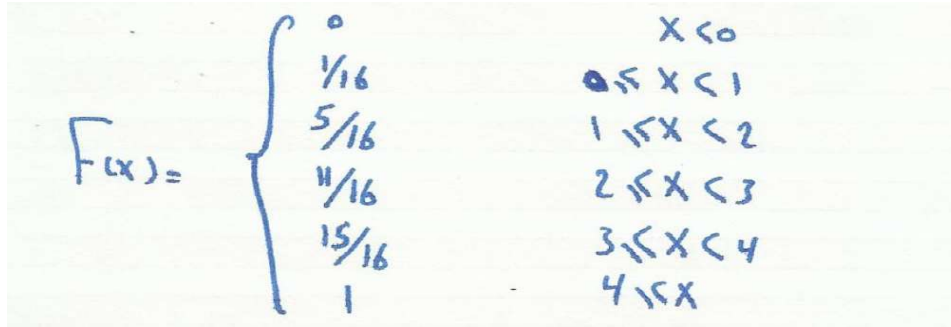 0 x<0
1/16 0≤x<1
5/16 1≤x<2
F(x)= 11/16 2≤x<3
15/16 3≤x<4
1 4≤x